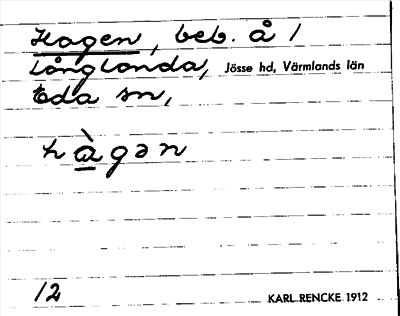 Hagen, beb. å 1
Långlanda, Jösse hd, Värmlands län
Eda sn,
hàgən
12 KARL RENCKE 1912